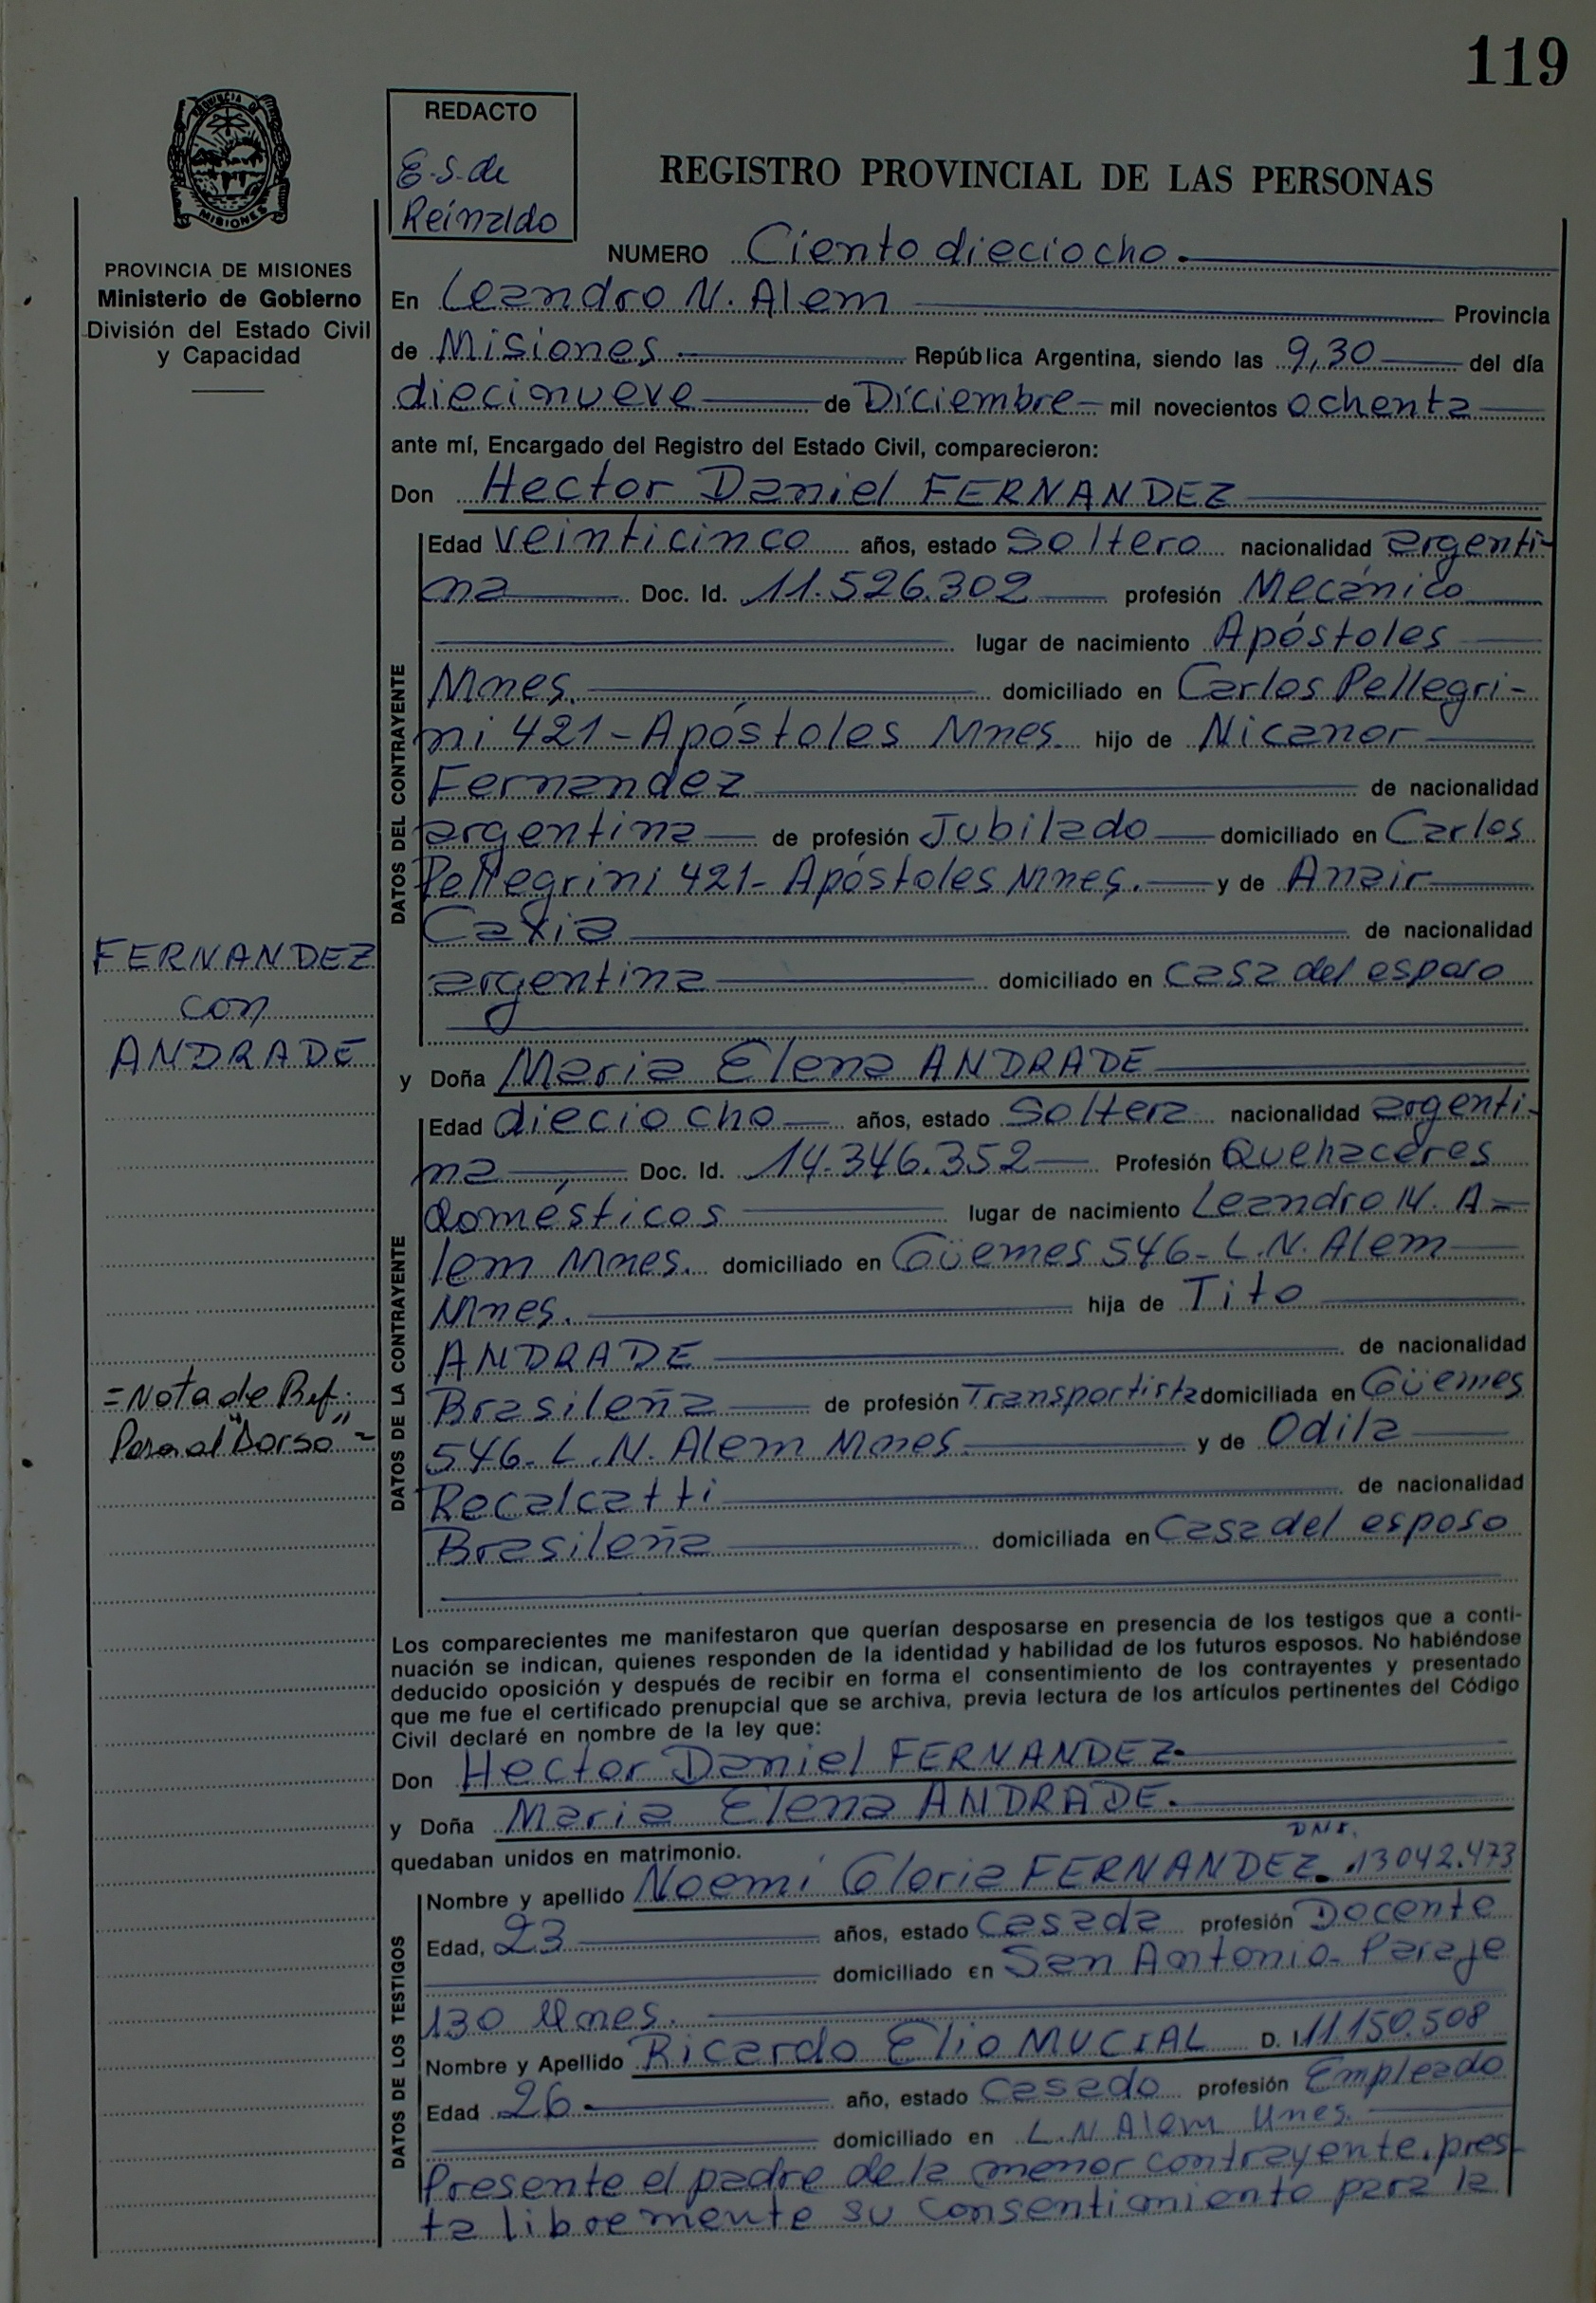 119
REDACTO
E.S. de
Reinaldo
PROVINCIA DE
MISIONES
REGISTRO PROVINCIAL DE LAS PERSONAS
PROVINCIA DE MISIONES
Ministerio de Gobierno
División del Estado Civil
y Capacidad
NUMERO Ciento dieciocho.
En Leandro N. Alem Provincia
de Misiones República Argentina, siendo las 9,30 del día
diecinueve de Diciembre mil novecientos ochenta
ante mí, Encargado del Registro del Estado Civil, comparecieron:
Don Hector Daniel FERNANDEZ
DATOS DEL CONTRAYENTE
Edad veinticinco años, estado soltero nacionalidad argenti-
na Doc. Id. 11.526.302 profesión Mecánico
lugar de nacimiento Apóstoles
Mnes. domiciliado en Carlos Pellegri-
ni 421 - Apóstoles Mnes. hijo de Nicanor
Fernandez de nacionalidad
argentina de profesión Jubilado domiciliado en Carlos
Pellegrini 421 - Apóstoles Mnes. y de Anair
Caxia de nacionalidad
argentina domiciliado en Casa del esposo
FERNANDEZ
con
ANDRADE
y Doña Maria Elena ANDRADE
DATOS DE LA CONTRAYENTE
Edad dieciocho años, estado Soltera nacionalidad argenti-
na Doc. Id. 14.346.352 Profesión Quehaceres
domésticos lugar de nacimiento Leandro N. A-
lem Mnes. domiciliado en Güemes 546 - L.N. Alem
Mnes. hija de Tito
ANDRADE de nacionalidad
Brasileña de profesión Transportista domiciliada en Güemes
546 - L.N. Alem Mnes. y de Odila
Recalcatti de nacionalidad
Brasileña domiciliada en Casa del esposo
= Nota de Ref.:
Pasa al "Dorso" =
Los comparecientes me manifestaron que querían desposarse en presencia de los testigos que a conti-
nuación se indican, quienes responden de la identidad y habilidad de los futuros esposos. No habiéndose
deducido oposición y después de recibir en forma el consentimiento de los contrayentes y presentado
que me fue el certificado prenupcial que se archiva, previa lectura de los artículos pertinentes del Código
Civil declaré en nombre de la ley que:
Don Hector Daniel FERNANDEZ
y Doña Maria Elena ANDRADE.
quedaban unidos en matrimonio.
DATOS DE LOS TESTIGOS
DNI.
Nombre y apellido Noemi Gloria FERNANDEZ. 13042.473
Edad, 23 años, estado Casada profesión Docente
domiciliado en San Antonio - Paraje
130 Mnes.
Nombre y Apellido Ricardo Elio MUCIAL D. I. 11.150.508
Edad 26 año, estado Casado profesión Empleado
domiciliado en L.N Alem Mnes.
Presente el padre de la menor contrayente, pres-
ta libremente su consentimiento para la